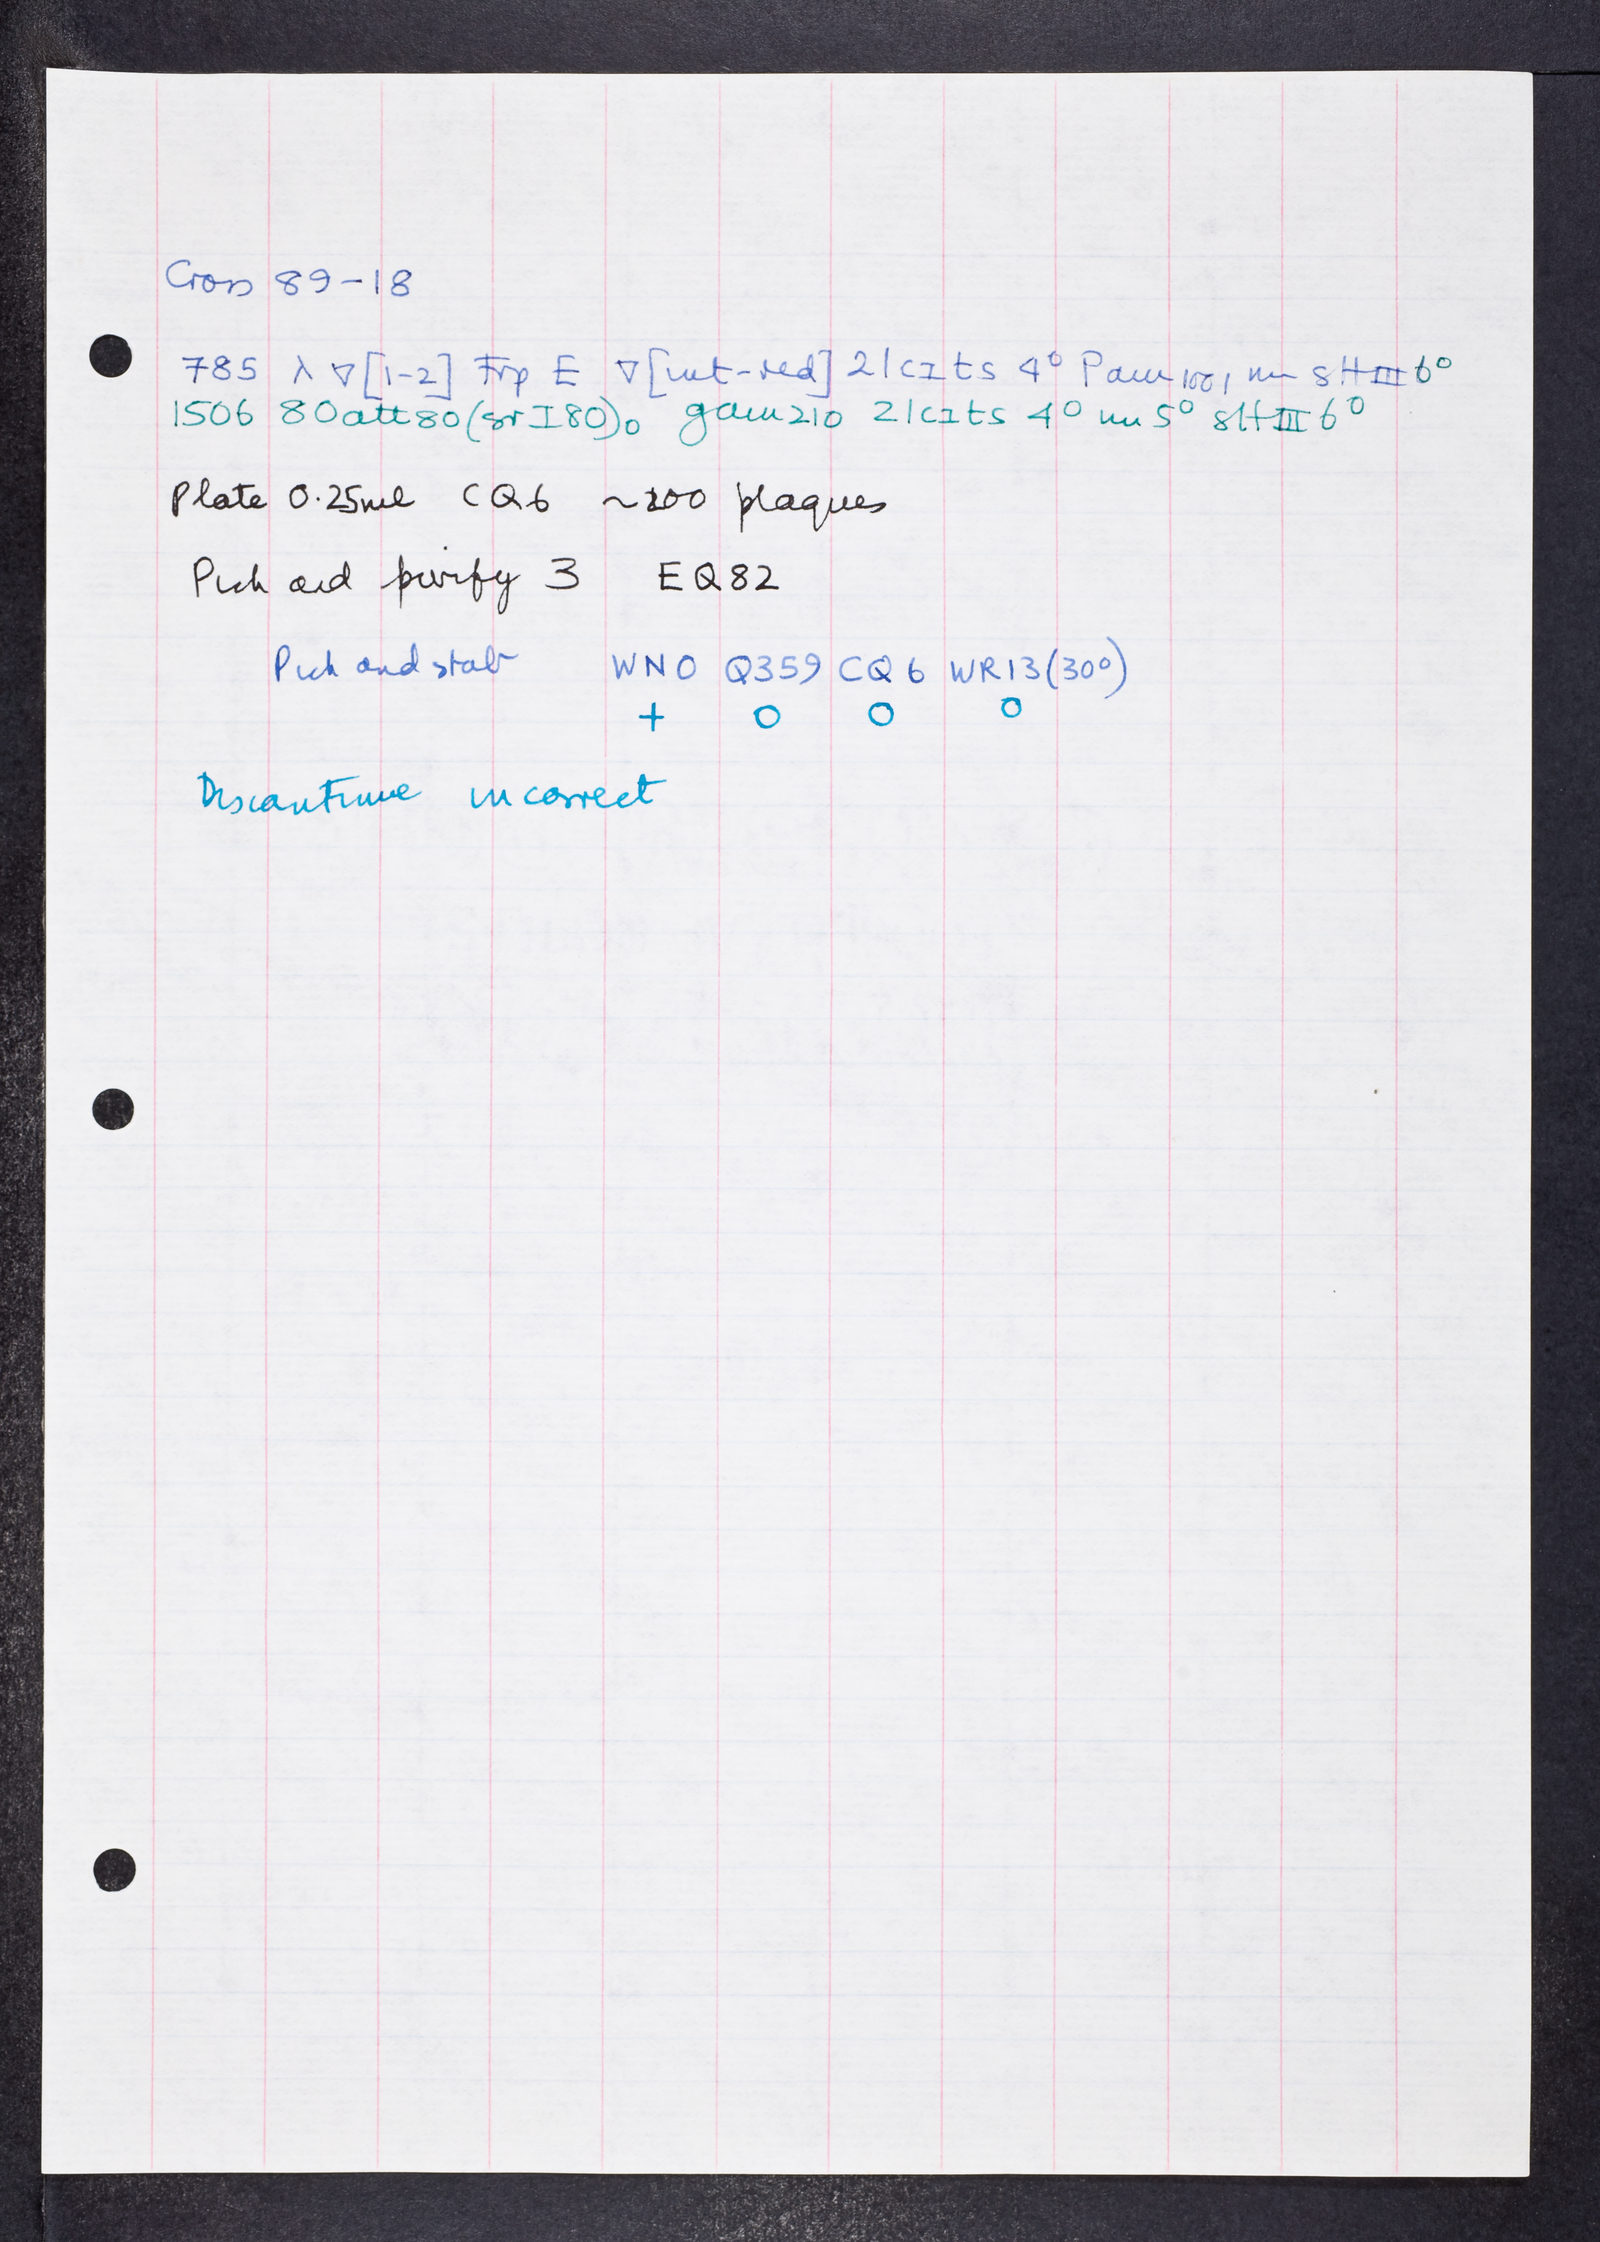 Cross 89-18
785 λ ∇[1-2] Trp E ∇[int-red] 21cIts 4° Pam1001 nin sHIII 6°
1506 80att80(srI80)₀ gam210 21cIts 4° nin 5° sHIII 6°
Plate 0.25ml CQ6 ~200 plaques
Pick and purify 3 EQ82
Pick and stab WNO Q359 CQ6 WR13(30°)
+ O O O
Discontinue incorrect